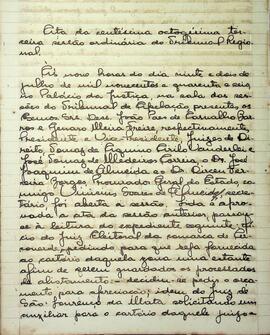 Ata da centésima octogésima ter-
ceira sessão ordinária do Tribunal Regio-
nal.
Às nove horas do dia vinte e dois de
julho de mil novecentos e quarenta e seis,
no Palácio da Justiça, na sala das ses-
sões do Tribunal de Apelação presentes os
Exmos. Srs. Des. João Paes de Carvalho Bar-
ros e Genaro Freire, respectivamente,
Presidente e Vice-Presidente, Juizes de Di-
reito, Tomaz de Aquino Cirilo Wanderlei e
José Tomaz de Medeiros Correia, o Dr. José
Joaquim de Almeida e o Dr. Dirceu Fer-
reira Borges, Procurador Geral do Estado co-
migo secre-
tário foi aberta a sessão. Lida e a-
provada a ata da sessão anterior, passou-
se à leitura do expediente seguinte: ofi-
cio do Juiz Eleitoral da comarca de Ca-
nhotinho pedindo para que seja fornecida
ao cartório daquela zona uma estante
afim de serem guardados os processados
de alistamento - decidiu-se pedir o orça-
mento para a fornecer; idem do juiz de
São Lourenço da Mata solicitando um
auxiliar para o cartório daquele juizo-